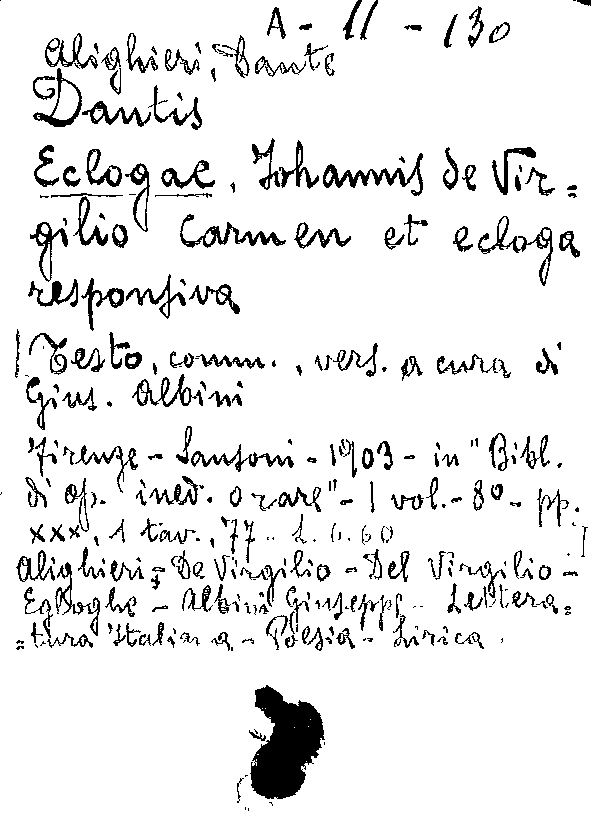 A - 11 - 130
Alighieri, Dante
Dantis
Eclogae, Johannis de Vir=
gilio Carmen et ecloga
responsiva
| Testo, comm., vers. a cura di
Gius. Albini
Firenze - Sansoni - 1903 - in "Bibl.
di op. ined. o rare" - 1 vol. - 8º - pp.
XXX, 1 tav., 77 - L. 6.60
Alighieri - De Virgilio - Del Virgilio -
Egloghe - Albini Giuseppe - Lettera=
=tura Italiana - Poesia - Lirica.